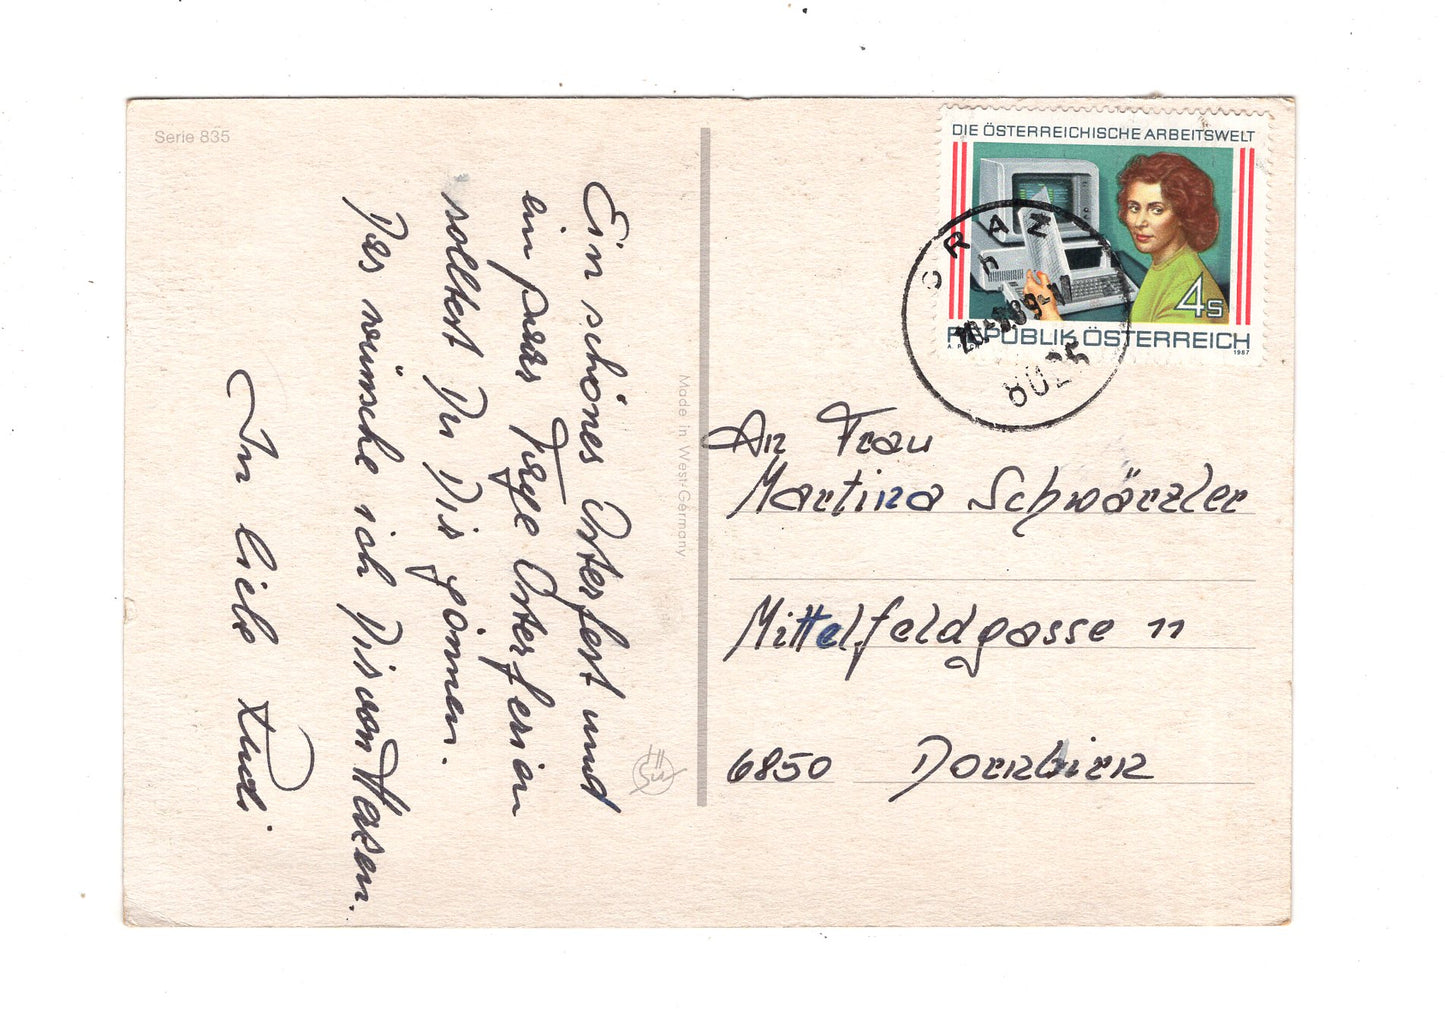 Serie 835
Ein schönes Osterfest und
ein paar Tage Osterferien
solltest Du Dir gönnen.
Das wünsche ich Dir von Herzen.
In Liebe Rudi
Made in West-Germany
DIE ÖSTERREICHISCHE ARBEITSWELT
4s
REPUBLIK ÖSTERREICH
1987
GRAZ
8025
An Frau
Martina Schwärzler
Mittelfeldgasse 11
6850 Dornbirn